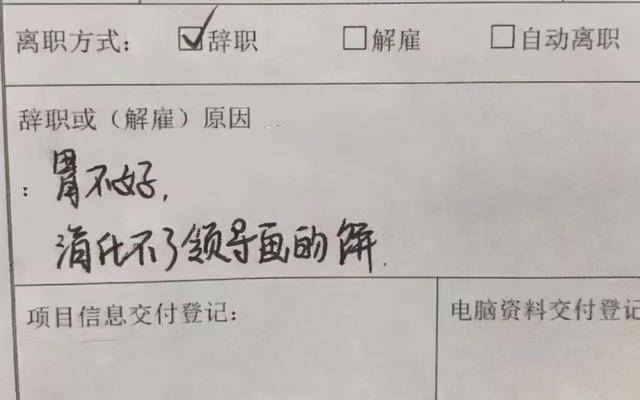 离职方式： ☑辞职 □解雇 □自动离职
辞职或（解雇）原因
：胃不好，
消化不了领导画的饼.
项目信息交付登记： 电脑资料交付登记